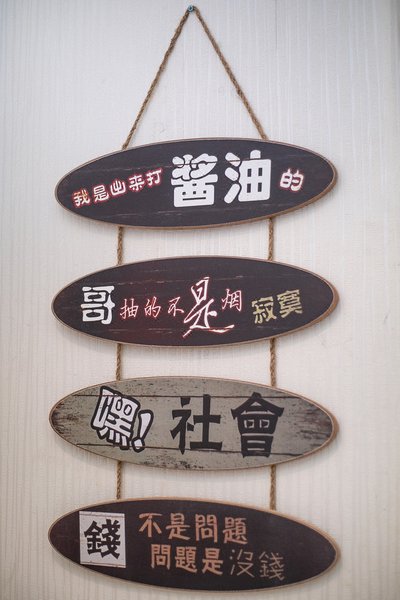 我是出来打醬油的
哥抽的不是烟寂寞
嘿!社會
錢不是問題
問題是沒錢